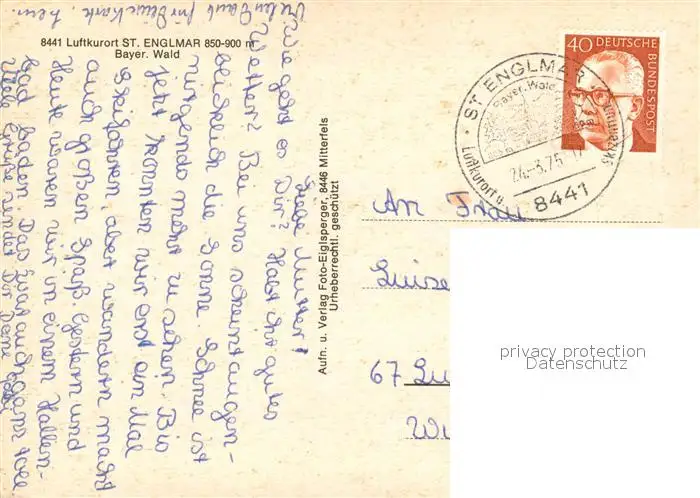 8441 Luftkurort ST. ENGLMAR 850-900 m
Bayer. Wald
Vielen Dank für Deine Karte,
Liebe Mutter!
Wie geht es Dir? Habt ihr gutes
Wetter? Bei uns scheint augen-
blicklich die Sonne. Schnee ist
nirgends mehr zu sehen. Bis
jetzt konnten wir erst ein Mal
Skifahren, aber wandern macht
auch großen Spaß. Gestern und
Heute waren wir in einem Hallen-
bad baden. Das war auch ganz toll
Viele Grüße sendet Dir Deine
Aufn. u. Verlag Foto-Eiglsperger, 8446 Mitterfels
Urheberrechtl. geschützt
40 DEUTSCHE BUNDESPOST
ST ENGLMAR
Bayer. Wald
Luftkurort u.
Skizentrum
8441
An Frau
Luise
67 Lu
privacy protection
Datenschutz